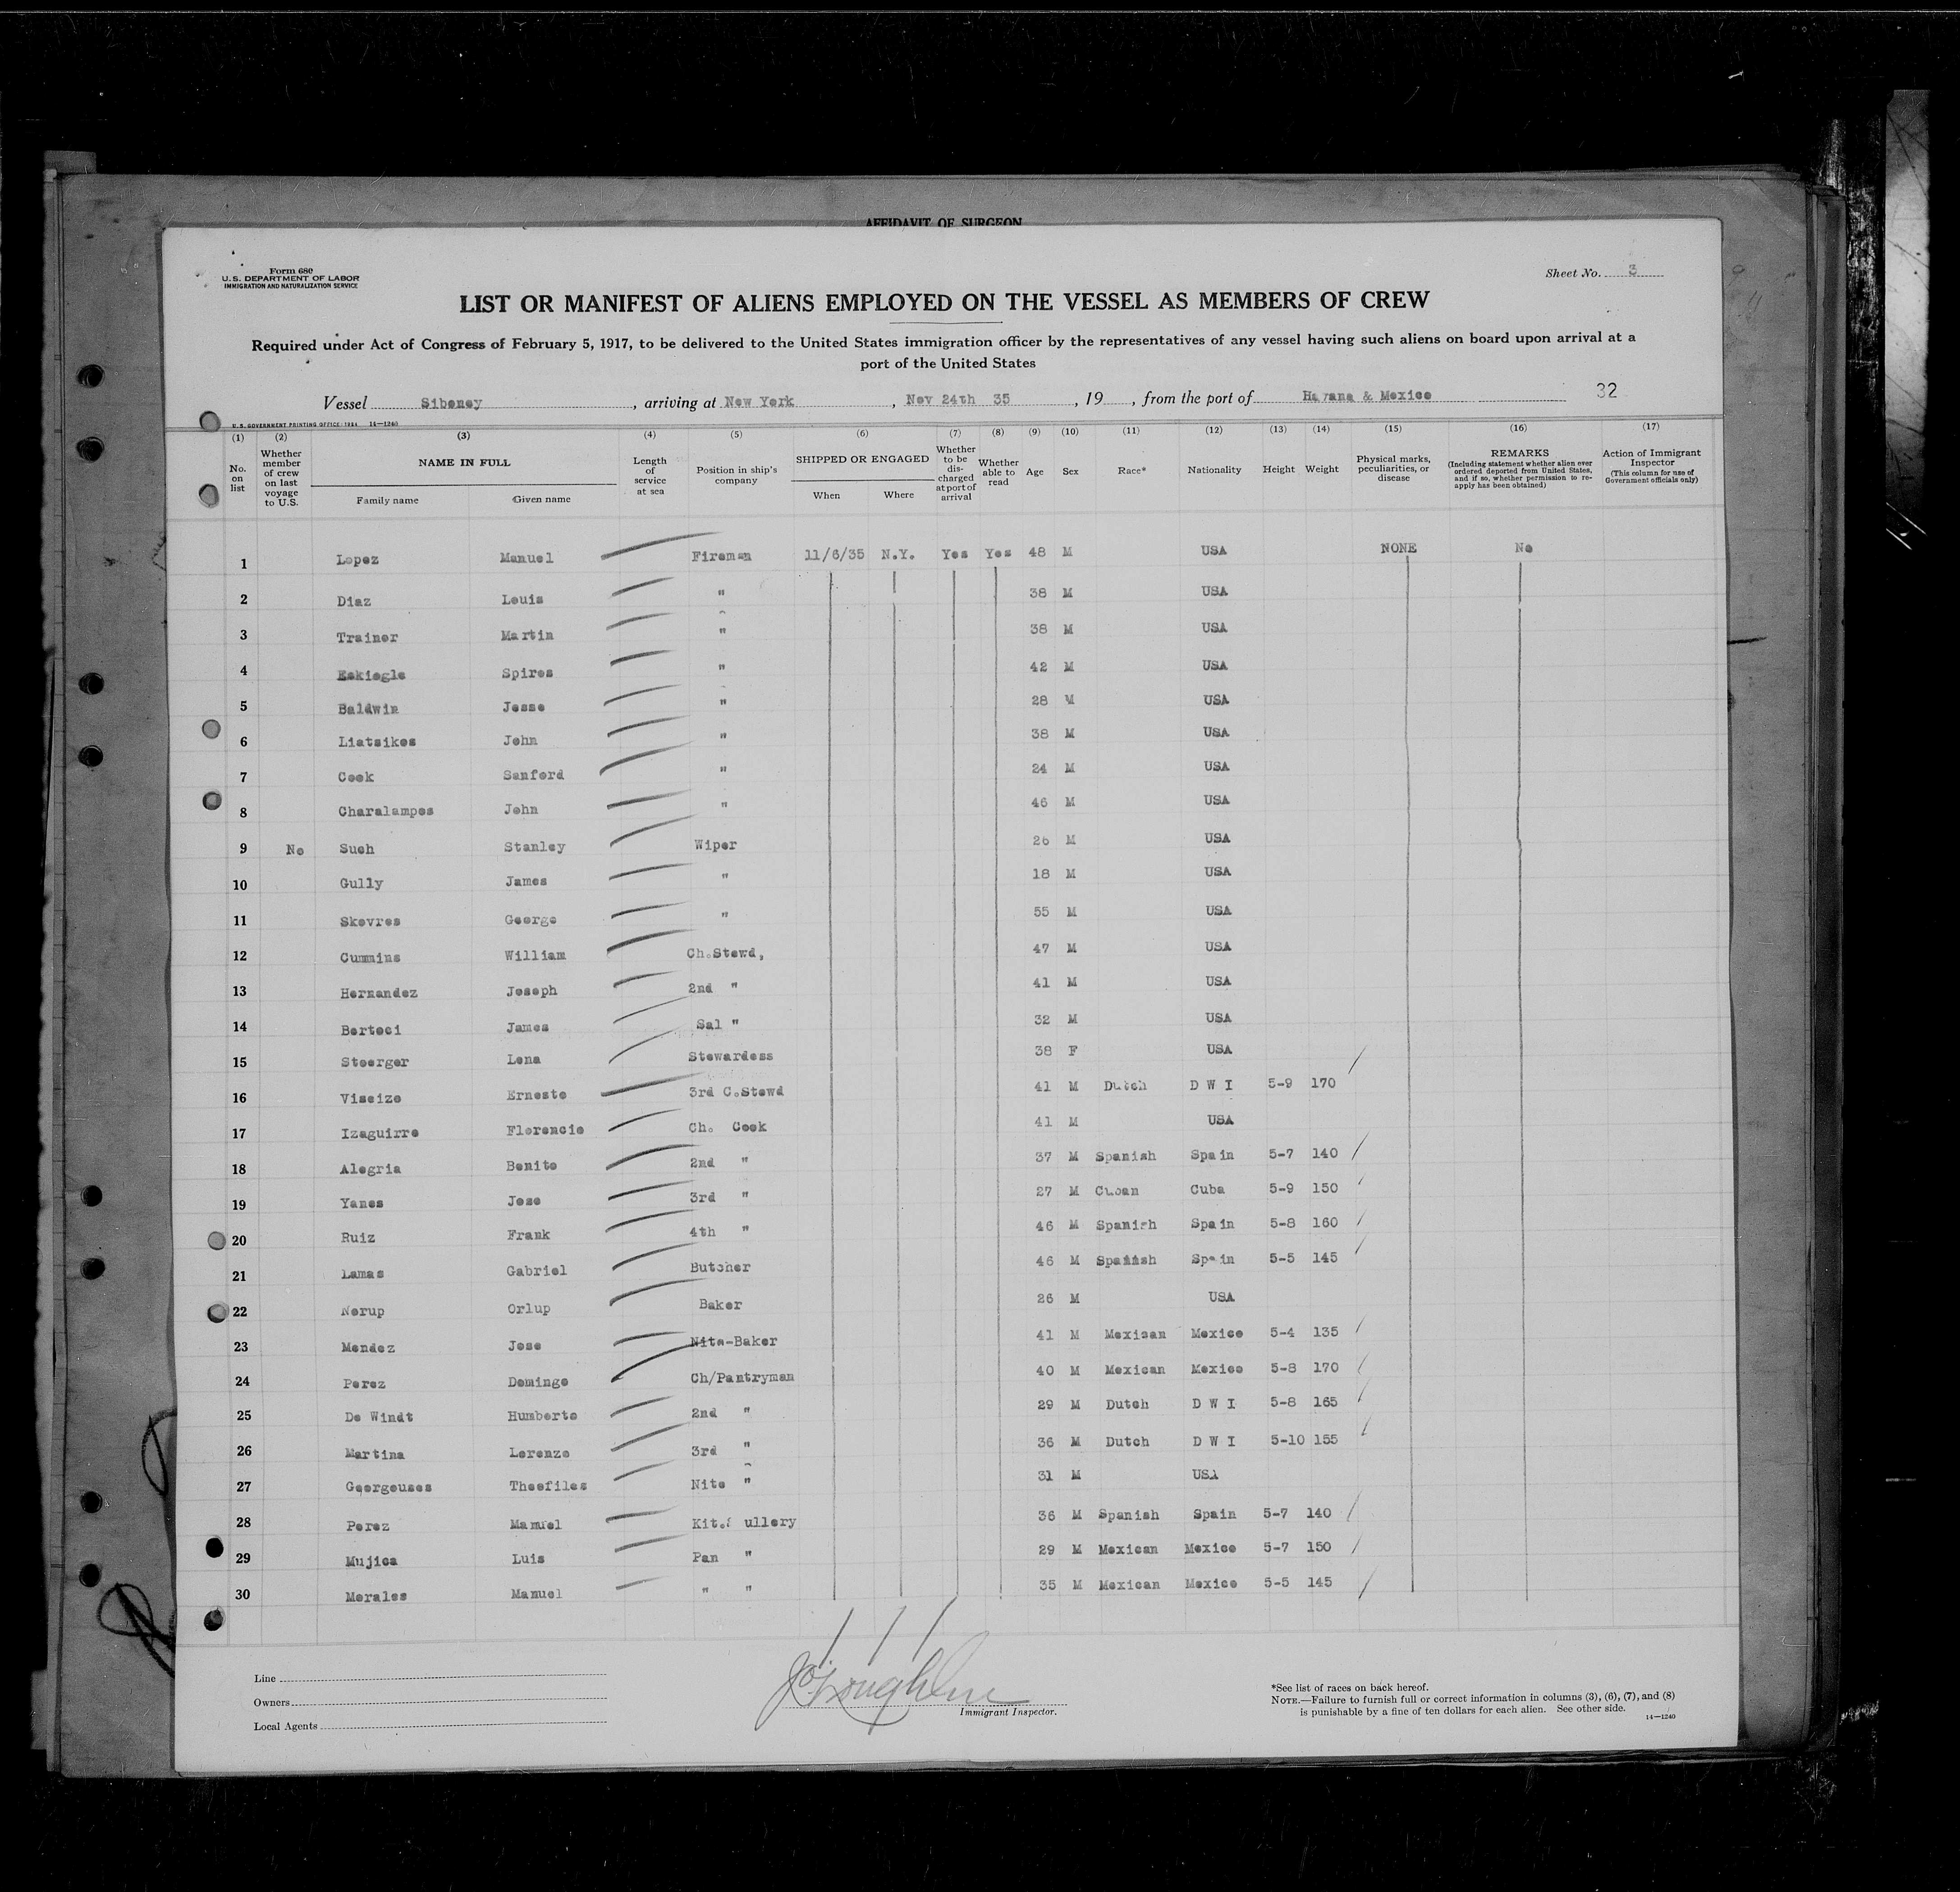 AFFIDAVIT OF SURGEON
Form 680
U. S. DEPARTMENT OF LABOR
IMMIGRATION AND NATURALIZATION SERVICE
Sheet No. 3
LIST OR MANIFEST OF ALIENS EMPLOYED ON THE VESSEL AS MEMBERS OF CREW
Required under Act of Congress of February 5, 1917, to be delivered to the United States immigration officer by the representatives of any vessel having such aliens on board upon arrival at a
port of the United States
Vessel Siboney, arriving at New York, Nov 24th 35, 19, from the port of Havana & Mexico 32
U. S. GOVERNMENT PRINTING OFFICE: 1934 14—1240
(1) (2) (3) (4) (5) (6) (7) (8) (9) (10) (11) (12) (13) (14) (15) (16) (17)
No. on list
Whether member of crew on last voyage to U.S.
NAME IN FULL
Family name Given name
Length of service at sea
Position in ship's company
SHIPPED OR ENGAGED
When Where
Whether to be discharged at port of arrival
Whether able to read
Age Sex Race* Nationality Height Weight
Physical marks, peculiarities, or disease
REMARKS
(Including statement whether alien ever ordered deported from United States, and if so, whether permission to re-apply has been obtained)
Action of Immigrant Inspector
(This column for use of Government officials only)
1 Lopez Manuel Fireman 11/6/35 N.Y. Yes Yes 48 M USA NONE No
2 Diaz Louis " 38 M USA
3 Trainor Martin " 38 M USA
4 Eskiogle Spiros " 42 M USA
5 Baldwin Jesse " 28 M USA
6 Liatsikos John " 38 M USA
7 Cook Sanford " 24 M USA
8 Charalampos John " 46 M USA
9 No Such Stanley Wiper 26 M USA
10 Gully James " 18 M USA
11 Skevres George " 55 M USA
12 Cummins William Ch.Stewd, 47 M USA
13 Hernandez Joseph 2nd " 41 M USA
14 Bertoci James Sal " 32 M USA
15 Steerger Lena Stewardess 38 F USA
16 Viseizo Ernesto 3rd C.Stewd 41 M Dutch D W I 5-9 170
17 Izaguirre Florencio Ch. Cook 41 M USA
18 Alegria Benito 2nd " 37 M Spanish Spain 5-7 140
19 Yanes Jose 3rd " 27 M Cuban Cuba 5-9 150
20 Ruiz Frank 4th " 46 M Spanish Spain 5-8 160
21 Lamas Gabriel Butcher 46 M Spanish Spain 5-5 145
22 Norup Orlup Baker 26 M USA
23 Mendez Jose Nite-Baker 41 M Mexican Mexico 5-4 135
24 Perez Domingo Ch/Pantryman 40 M Mexican Mexico 5-8 170
25 De Windt Humberto 2nd " 29 M Dutch D W I 5-8 165
26 Martina Lorenzo 3rd " 36 M Dutch D W I 5-10 155
27 Georgouses Theofiles Nite " 31 M USA
28 Perez Manuel Kit. ullery 36 M Spanish Spain 5-7 140
29 Mujica Luis Pan " 29 M Mexican Mexico 5-7 150
30 Morales Manuel " " 35 M Mexican Mexico 5-5 145
Line
Owners
Local Agents
Immigrant Inspector.
*See list of races on back hereof.
NOTE.—Failure to furnish full or correct information in columns (3), (6), (7), and (8)
is punishable by a fine of ten dollars for each alien. See other side.
14—1240